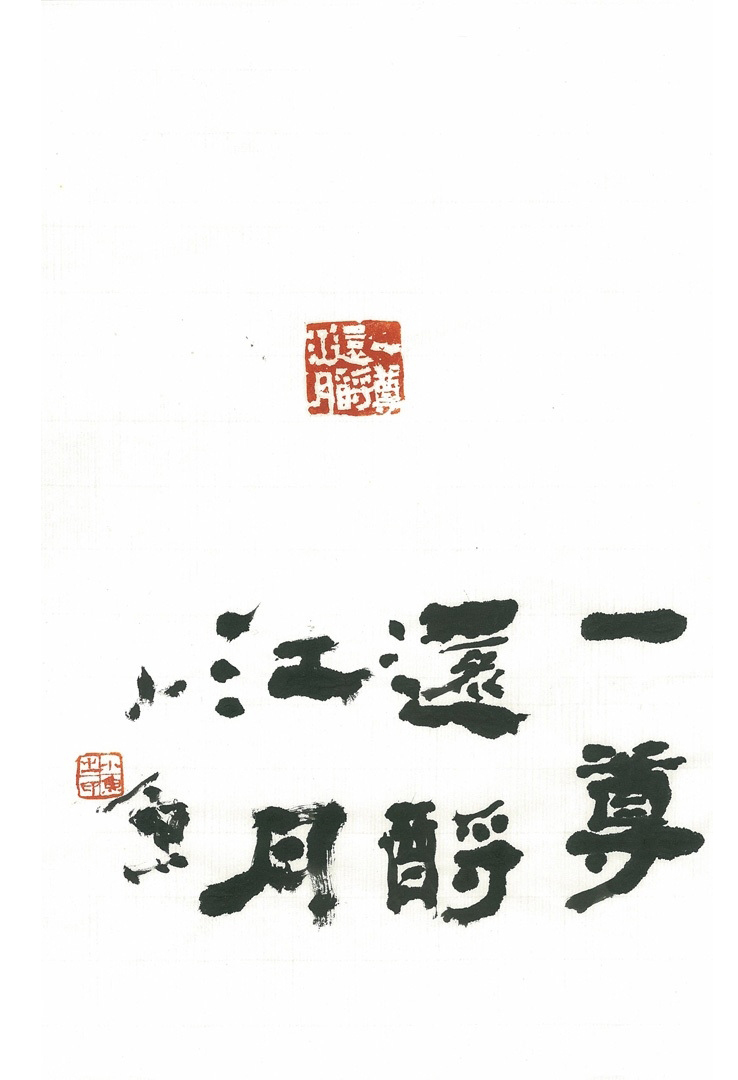 一尊
還酹
江月
一尊
還酹
江月
小魚
小魚
之印